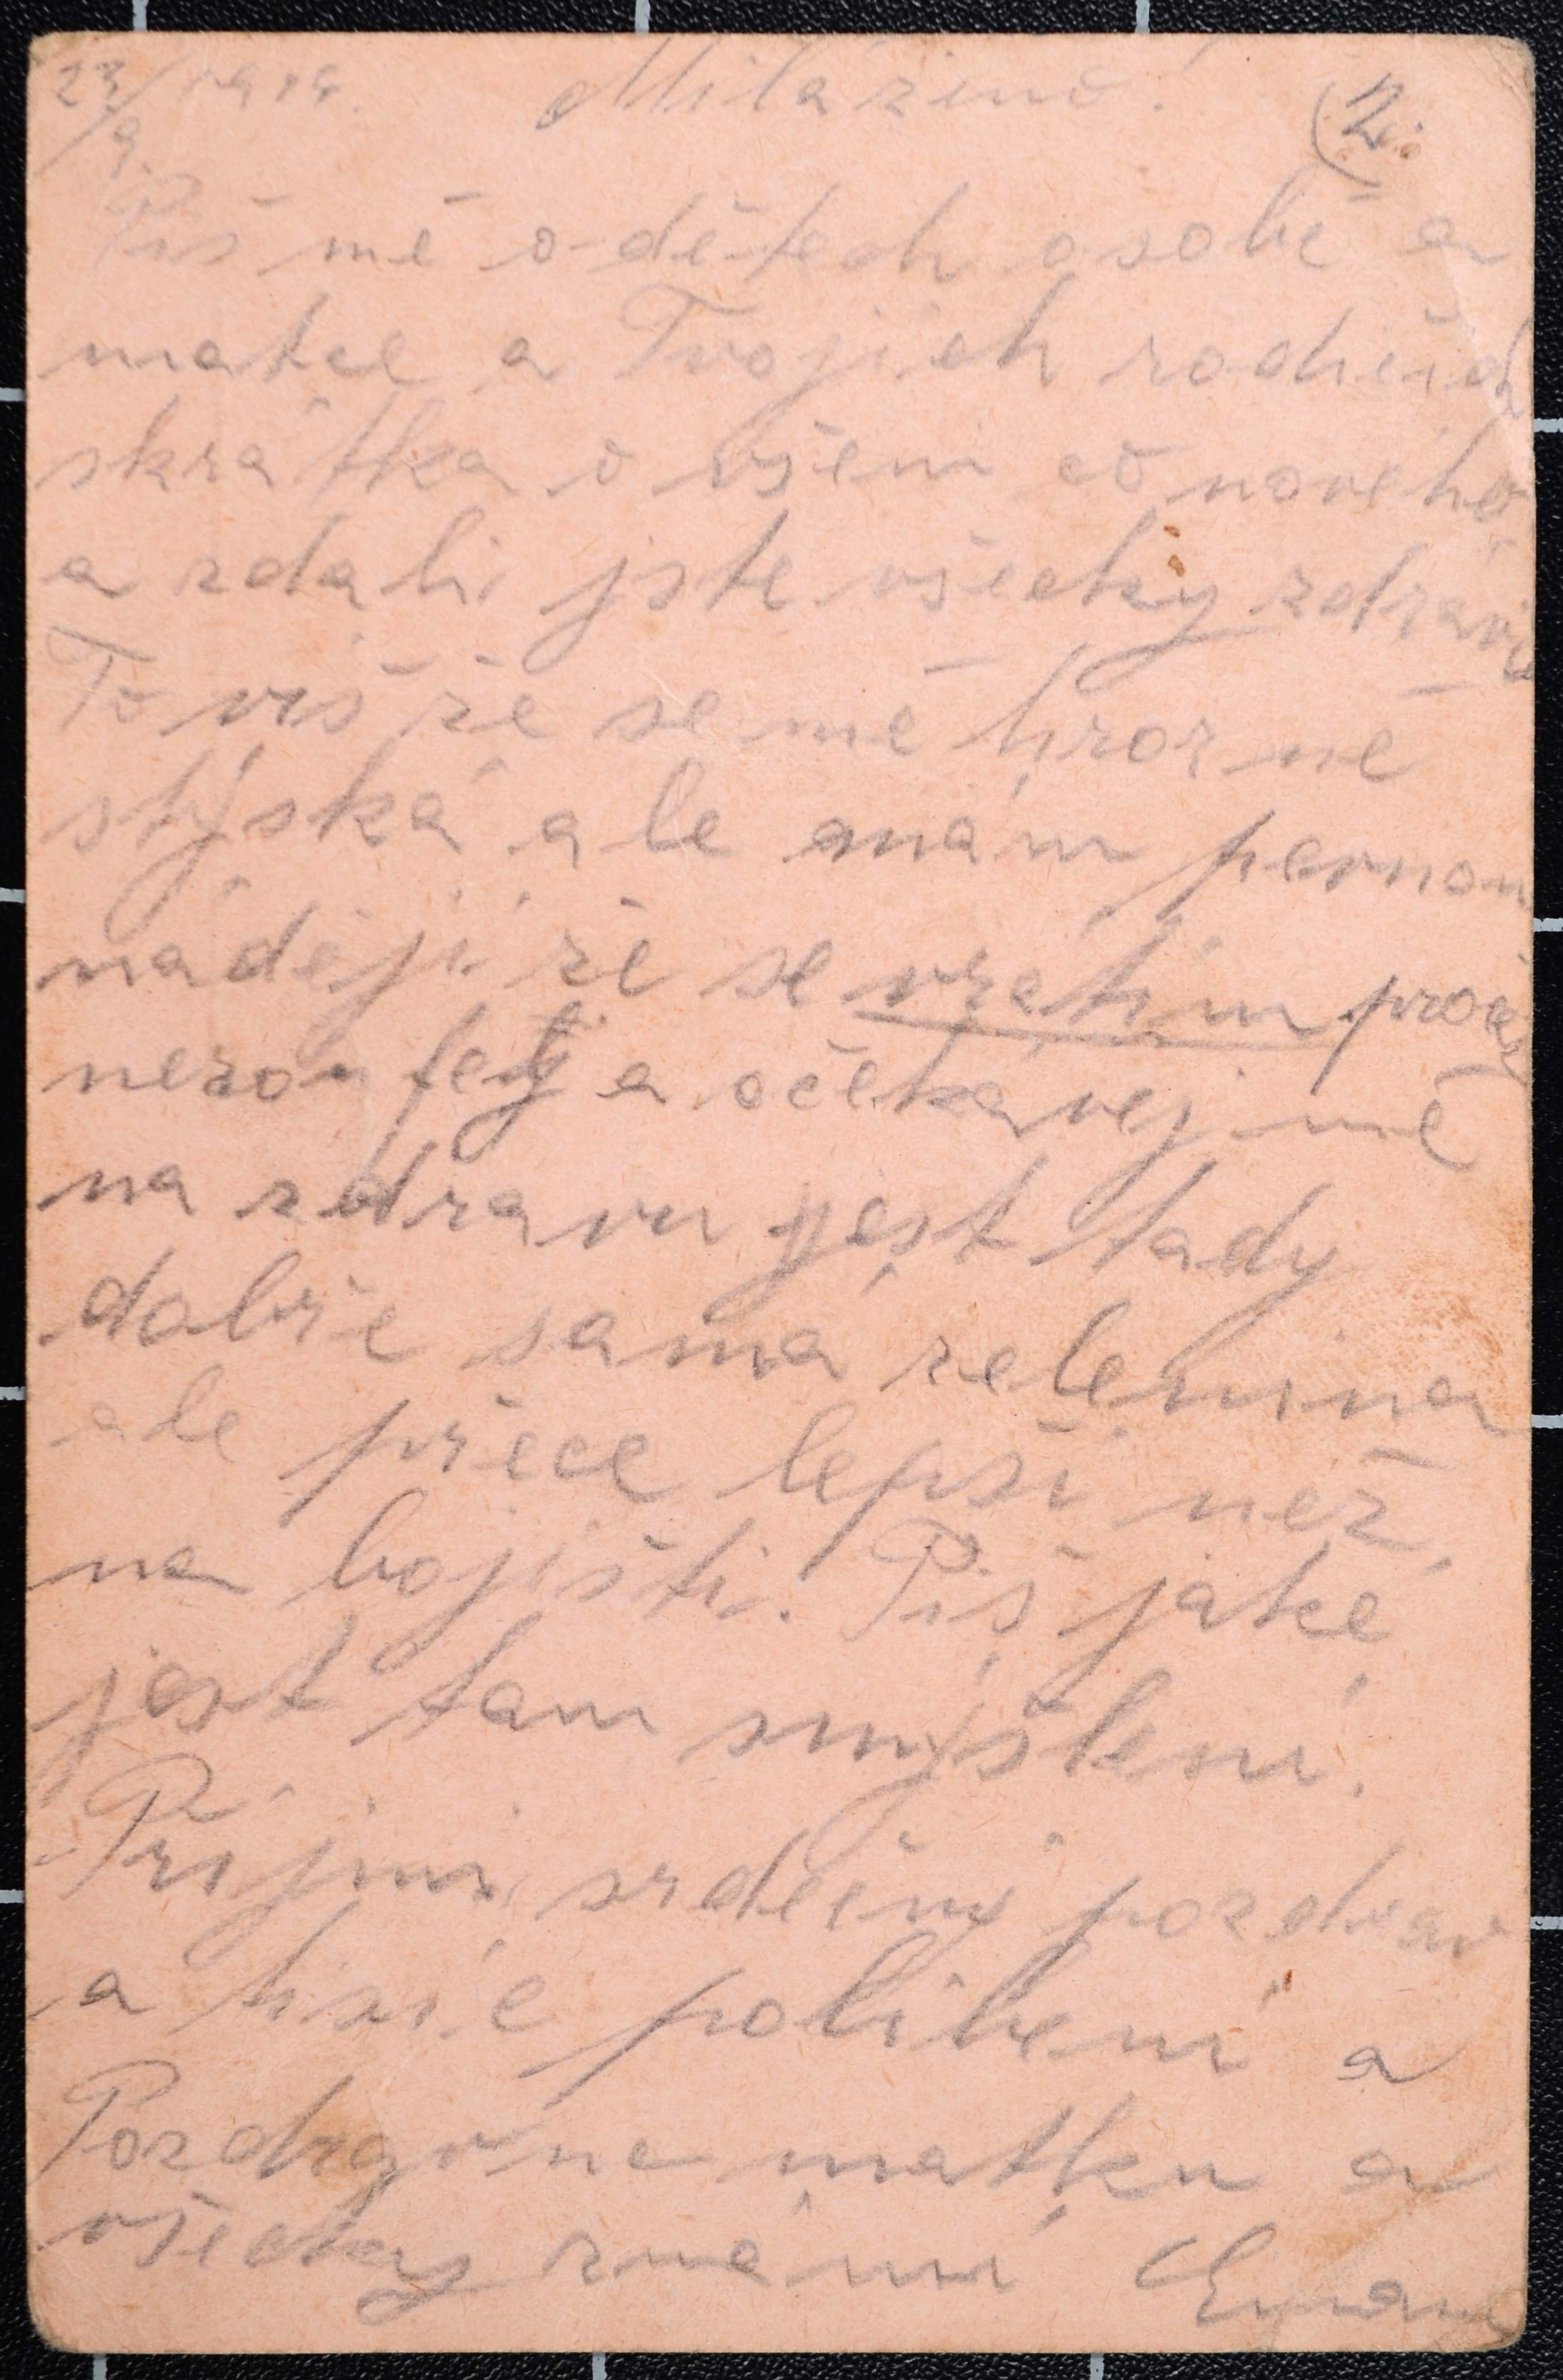 23/9. 1914. Milá ženo! (2.
Piš mě o dětech osobě a
matce a Tvojich rodičích
skrátka o všem co noveho
a zdali jste všecky zdrávi
To viš že se mě hrozně
stýská ale mám pevnou
naději že se vratim proč
nezoufej a očekavej mě
na zdravu jest tady
dobře samá zelenina
ale přece lepši než
na bojišti. Piš jaké
jest tam smyšleni.
Přijmi srdečný pozdrav
a tisíc políbení a
Pozdravuj matku a
všecky známí